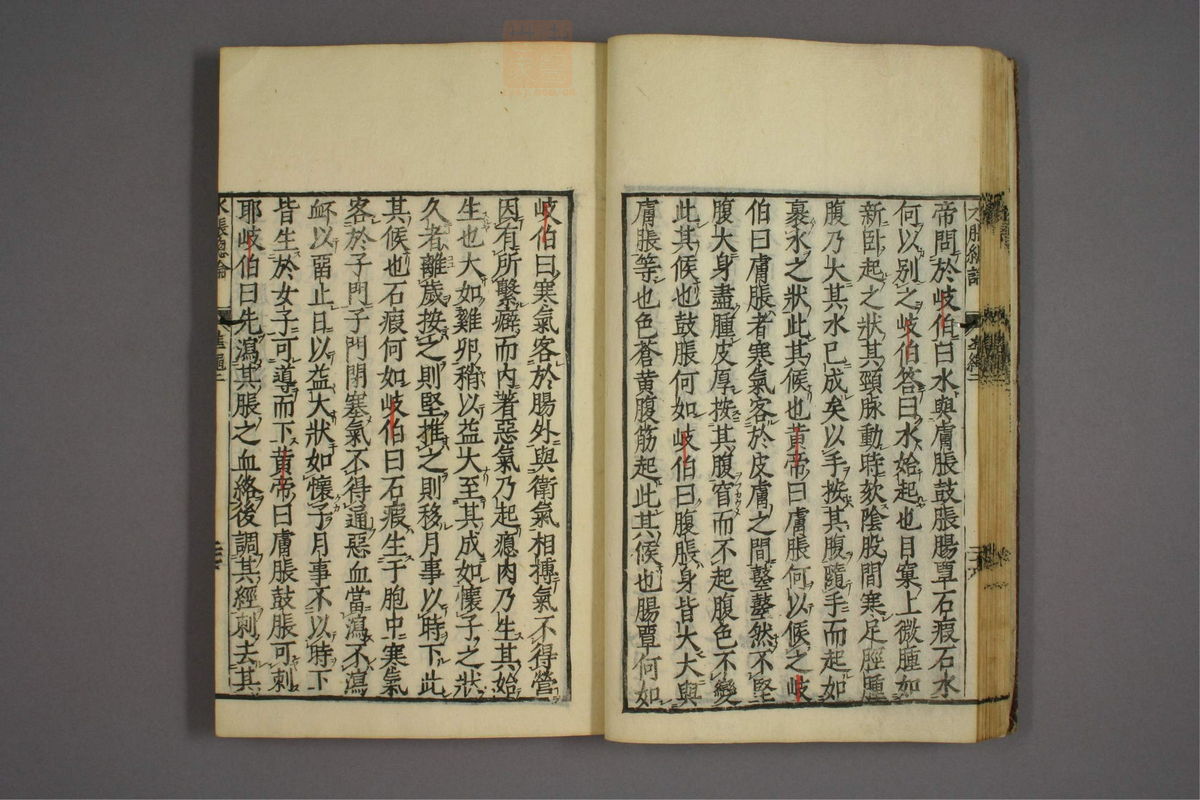 帝問於岐伯曰水與膚脹鼓脹腸覃石瘕石水
何以別之岐伯答曰水始起也目窠上微腫如
新卧起之狀其頸脉動時欬陰股間寒足脛腫
腹乃大其水已成矣以手按其腹隨手而起如
裹水之狀此其候也黃帝曰膚脹何以候之岐
伯曰膚脹者寒氣客於皮膚之間鼞鼞然不堅
腹大身盡腫皮厚按其腹窅而不起腹色不變
此其候也鼓脹何如岐伯曰腹脹身皆大大與
膚脹等也色蒼黃腹筋起此其候也腸覃何如
岐伯曰寒氣客於腸外與衛氣相搏氣不得營
因有所繫癖而內著惡氣乃起瘜肉乃生其始
生也大如雞卵稍以益大至其成如懷子之狀
久者離歲按之則堅推之則移月事以時下此
其候也石瘕何如岐伯曰石瘕生于胞中寒氣
客於子門子門閉塞氣不得通惡血當瀉不瀉
衃以畱止日以益大狀如懷子月事不以時下
皆生於女子可導而下黃帝曰膚脹鼓脹可刺
耶岐伯曰先瀉其脹之血絡後調其經刺去其